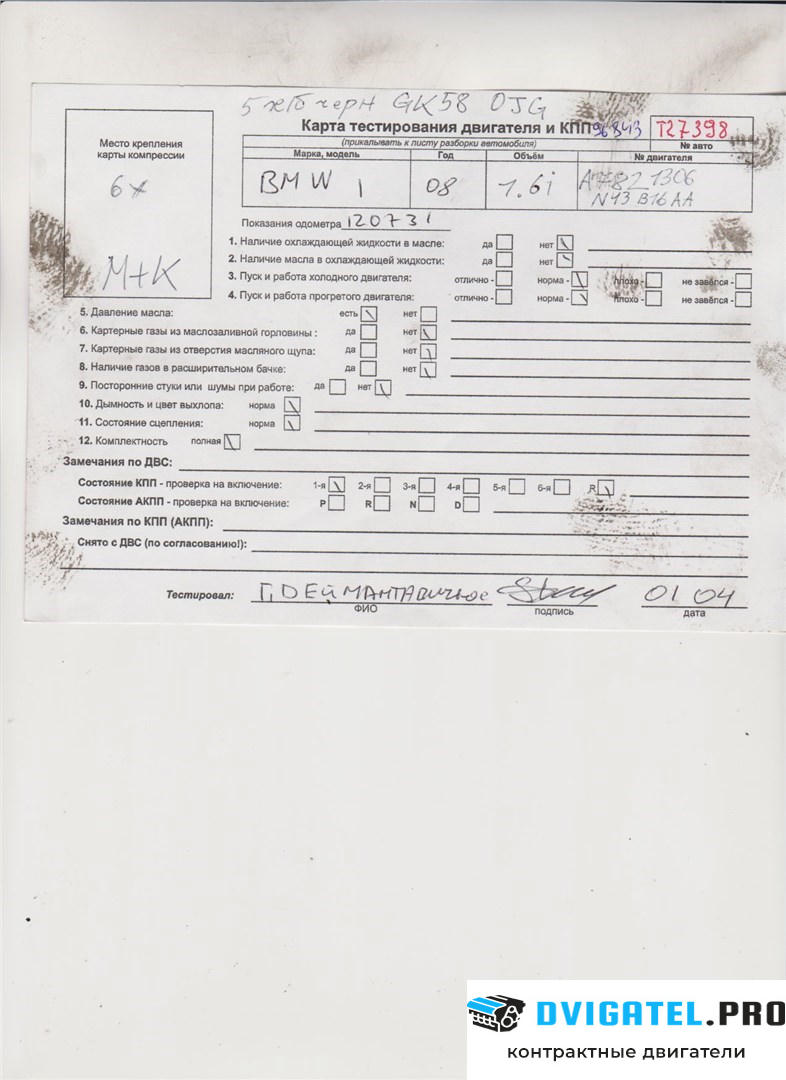 5 хтб черн GK58 OJG
Карта тестирования двигателя и КПП 96843 T27398
(прикалывать к листу разборки автомобиля) № авто
Место крепления
карты компрессии
6x
M+K
Марка, модель Год Объём № двигателя
BMW 1 08 1.6i A7821306
N43 B16 AA
Показания одометра 120731
1. Наличие охлаждающей жидкости в масле: да нет
2. Наличие масла в охлаждающей жидкости: да нет
3. Пуск и работа холодного двигателя: отлично - норма - плохо - не завёлся -
4. Пуск и работа прогретого двигателя: отлично - норма - плохо - не завёлся -
5. Давление масла: есть нет
6. Картерные газы из маслозаливной горловины : да нет
7. Картерные газы из отверстия масляного щупа: да нет
8. Наличие газов в расширительном бачке: да нет
9. Посторонние стуки или шумы при работе: да нет
10. Дымность и цвет выхлопа: норма
11. Состояние сцепления: норма
12. Комплектность полная
Замечания по ДВС:
Состояние КПП - проверка на включение: 1-я 2-я 3-я 4-я 5-я 6-я R
Состояние АКПП - проверка на включение: P R N D
Замечания по КПП (АКПП):
Снято с ДВС (по согласованию!):
Тестировал: 01 04
ФИО подпись дата
DVIGATEL.PRO
контрактные двигатели